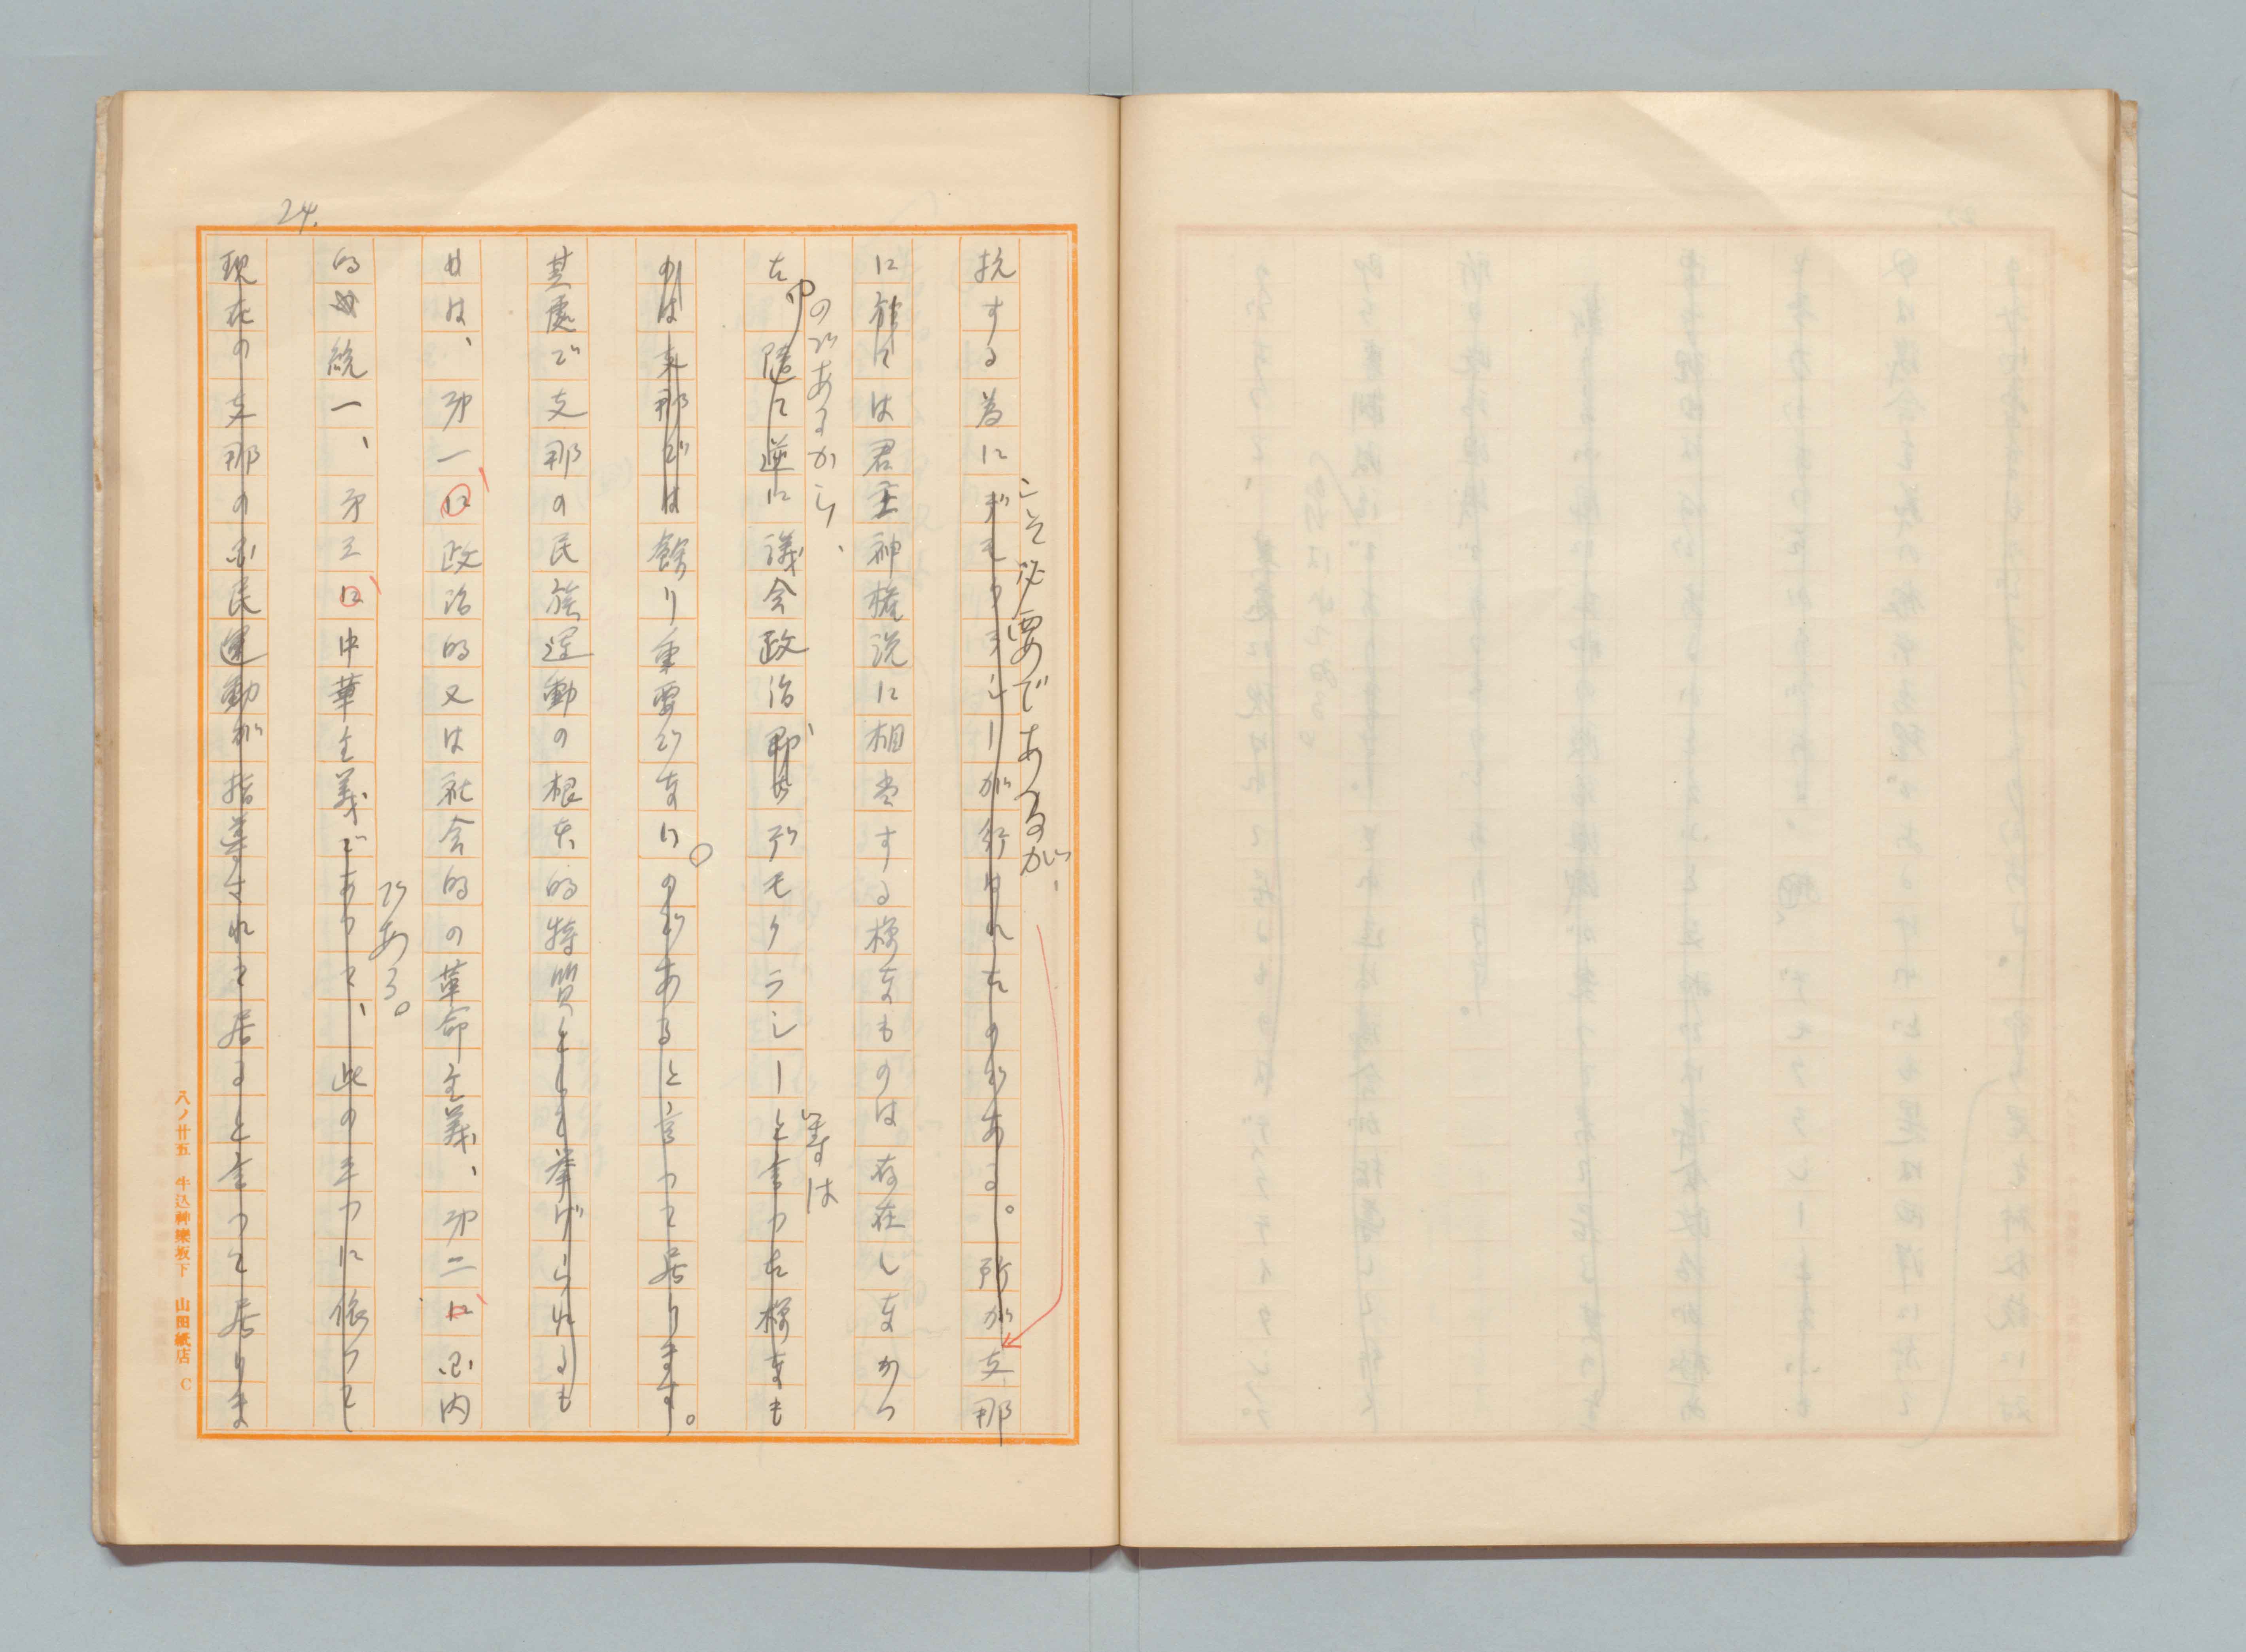 24.
抗する為にデモクラシーが行はれたのである。所が支那
こそ必要であるが、
に於ては君主神権説に相当する様なものは存在しなかつ
た
のであるから、
随て逆に議会政治即ちデモクラシーと言つた様なも
等は
のは支那では餘り重要でない。のであると言つて居ります。
其處で支那の民族運動の根本的特質としも挙げられるも
のは、第一に政治的又は社会的の革命主義、第二に国内
的統一、第三に中華主義であつて、此の三つに依つて
である。
現在の支那の国民運動が指導されて居ると言つて居りま
八ノ廿五 牛込神樂坂下 山田紙店 C